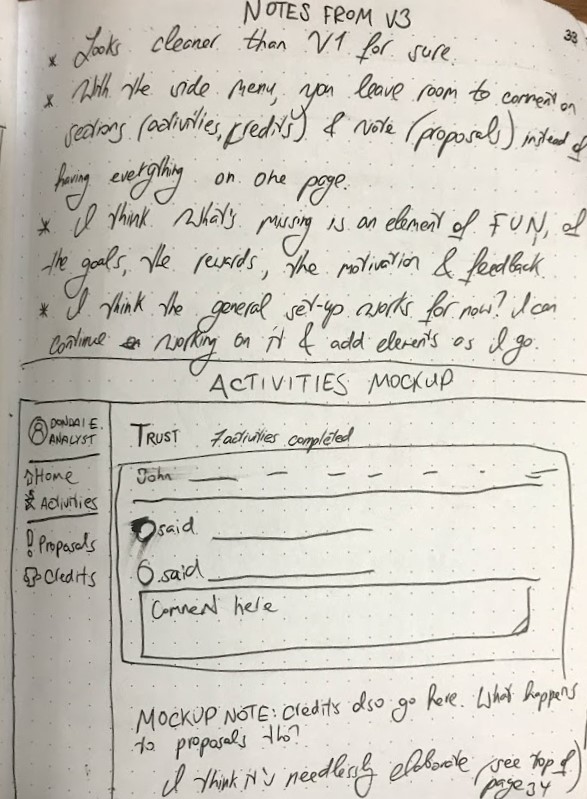 NOTES FROM V3
33
* Looks cleaner than V1 for sure.
* With the side menu, you leave room to comment on
sections (activities, credits) & vote (proposals) instead of
having everything on one page.
* I think what's missing is an element of FUN, of
the goals, the rewards, the motivation & feedback
* I think the general set-up works for now? I can
continue working on it & add elements as I go.
ACTIVITIES MOCKUP
DONDAI E.
ANALYST
Home
Activities
Proposals
Credits
TRUST 7 activities completed
John
said
said
Comment here
MOCKUP NOTE: Credits also go here. What happens
to proposals tho?
I think it's needlessly elaborate (see top of
page 34)